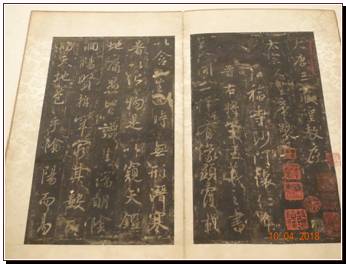 大唐三藏聖教序
太宗文皇帝製
弘福寺沙門懷仁集
晉右將軍王羲之書
蓋聞二儀有像顯覆載
以含生四時無形潛寒
暑以化物是以窺天鑑
地庸愚皆識其端明陰
洞陽賢哲罕窮其數然
而天地苞乎陰陽而易
10.04.2018